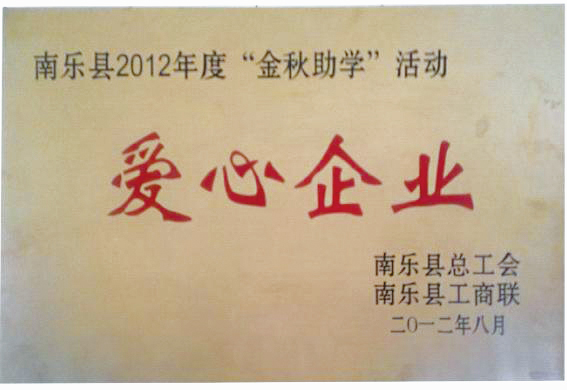 南乐县2012年度“金秋助学”活动
爱心企业
南乐县总工会
南乐县工商联
二〇一二年八月